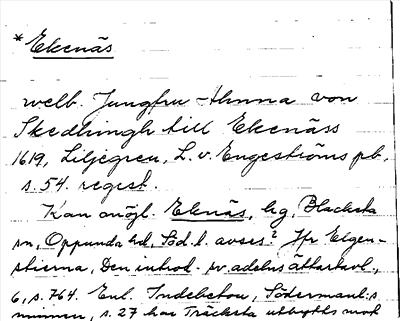 * Ekenäs
welb. Jungfru Anna von
Skedhingh till Ekenäss
1619, Liljegren, L. v. Engeströms pb,
s. 54. regest.
Kan möjl. Ekenäs, hg, Blacksta
sn, Oppunda hd, Söd. l. avses? Jfr Elgen-
stierna, Den introd. sv. adelns ättartavl.,
6, s. 764. Enl. Indebetou, Södermanl:s
minnen, s. 27 har Träcksta utbytts mot